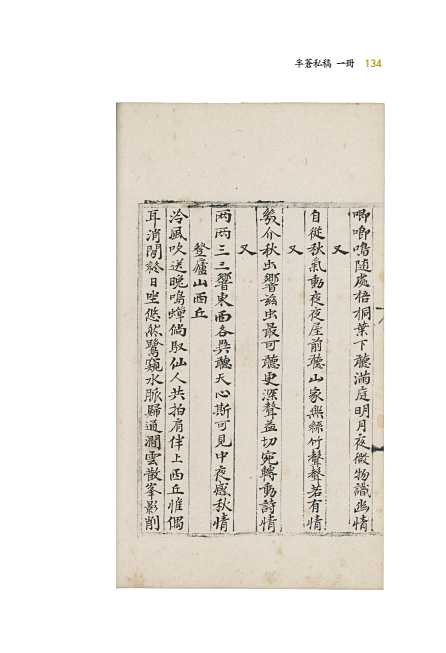 半蒼私稿 一冊 134
唧唧鳴隨處梧桐葉下聽滿庭明月夜微物識幽情
又
自從秋氣動夜夜屋前聽山家無絲竹聲聲若有情
又
幾介秋虫響玆虫最可聽更深聲益切宛轉動詩情
又
两两三三響東西各異聽天心斯可見中夜感秋情
登廬山西丘
泠風吹送晩鳴蟬偶馭仙人共拍肩伴上西丘惟偶
耳消閒終日坐悠然鷺窺水脈歸通澗雲散峯影削